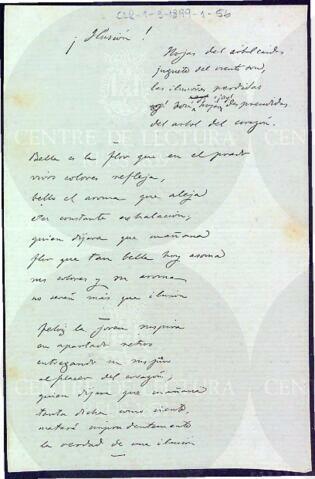 CLR-1-3-1899-1-56
¡Ilusión!
Hojas del arbol caidas
juguete del viento son,
las ilusiones perdidas
son hojas ¡ay! desprendidas
del arbol del corazón.
Bella es la flor que en el prado
vivos colores refleja,
bello el aroma que aleja
constante exhalación,
quien dijera que mañana
flor que tan bella hoy asoma
sus colores y su aroma
no serán más que ilusion
Feliz la joven suspira
en apartado retiro
entregando en
al placer del corazón,
quien dijera que mañana
tanta dicha como siente,
matará imprudentemente
la verdad de una ilusión
CENTRE DE LECTURA